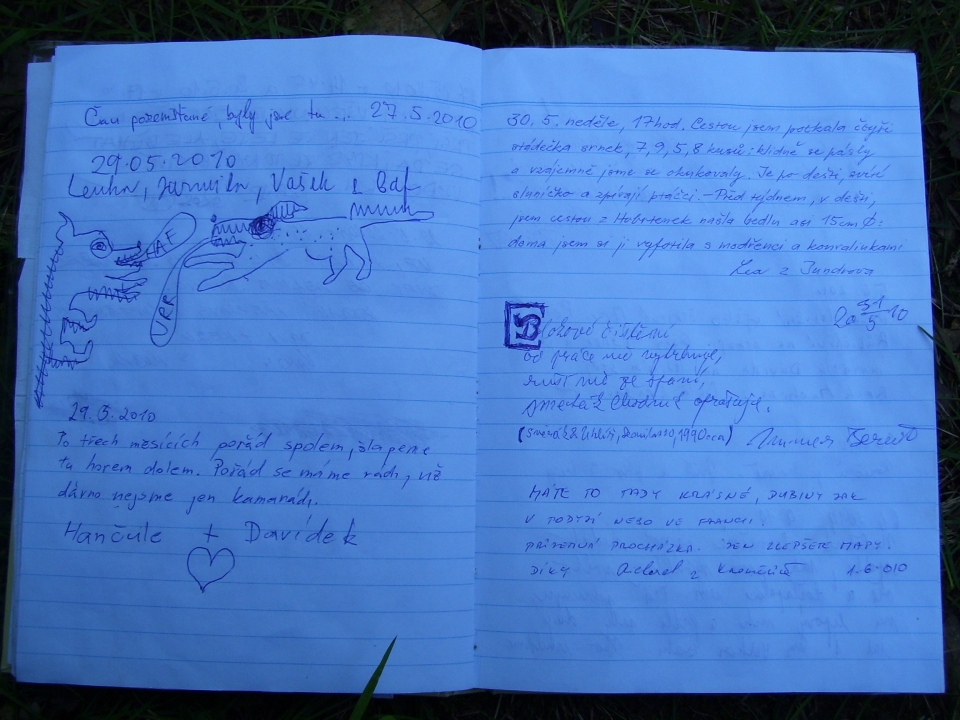 Čau pozemšťané, byly jsme tu... 27.5.2010
29.05.2010
Lenka, Jarmila, Vašek & Baf
AF
VRR
29.5.2010
Po třech měsících pořád spolem, šlapeme
tu horem dolem. Pořád se máme rádi, už
dávno nejsme jen kamarádi.
Hančule + Davídek
30. 5. neděle, 17hod. Cestou jsem potkala čtyři
stádečka srnek, 7, 9, 5, 8 kusů: klidně se pásly
a vzájemně jsme se okukovaly. Je po dešti, svítí
sluníčko a zpívají ptáčci. - Před týdnem, v dešti,
jsem cestou z Hobrtenek našla bedlu asi 15cm ø:
doma jsem si ji vyfotila s modřenci a konvalinkami
Lea z Jundrova
31
5
Blokové čištění
od práce mě vytrhuje,
ruší mě ze spaní,
smeták chodník oprašuje.
MÁTE TO TADY KRÁSNÉ, DUBINY JAK
V PODYJÍ NEBO VE FRANCII!
PŘÍJEMNÁ PROCHÁZKA. JEN ZLEPŠETE MAPY.
DÍKY z 1.6.010